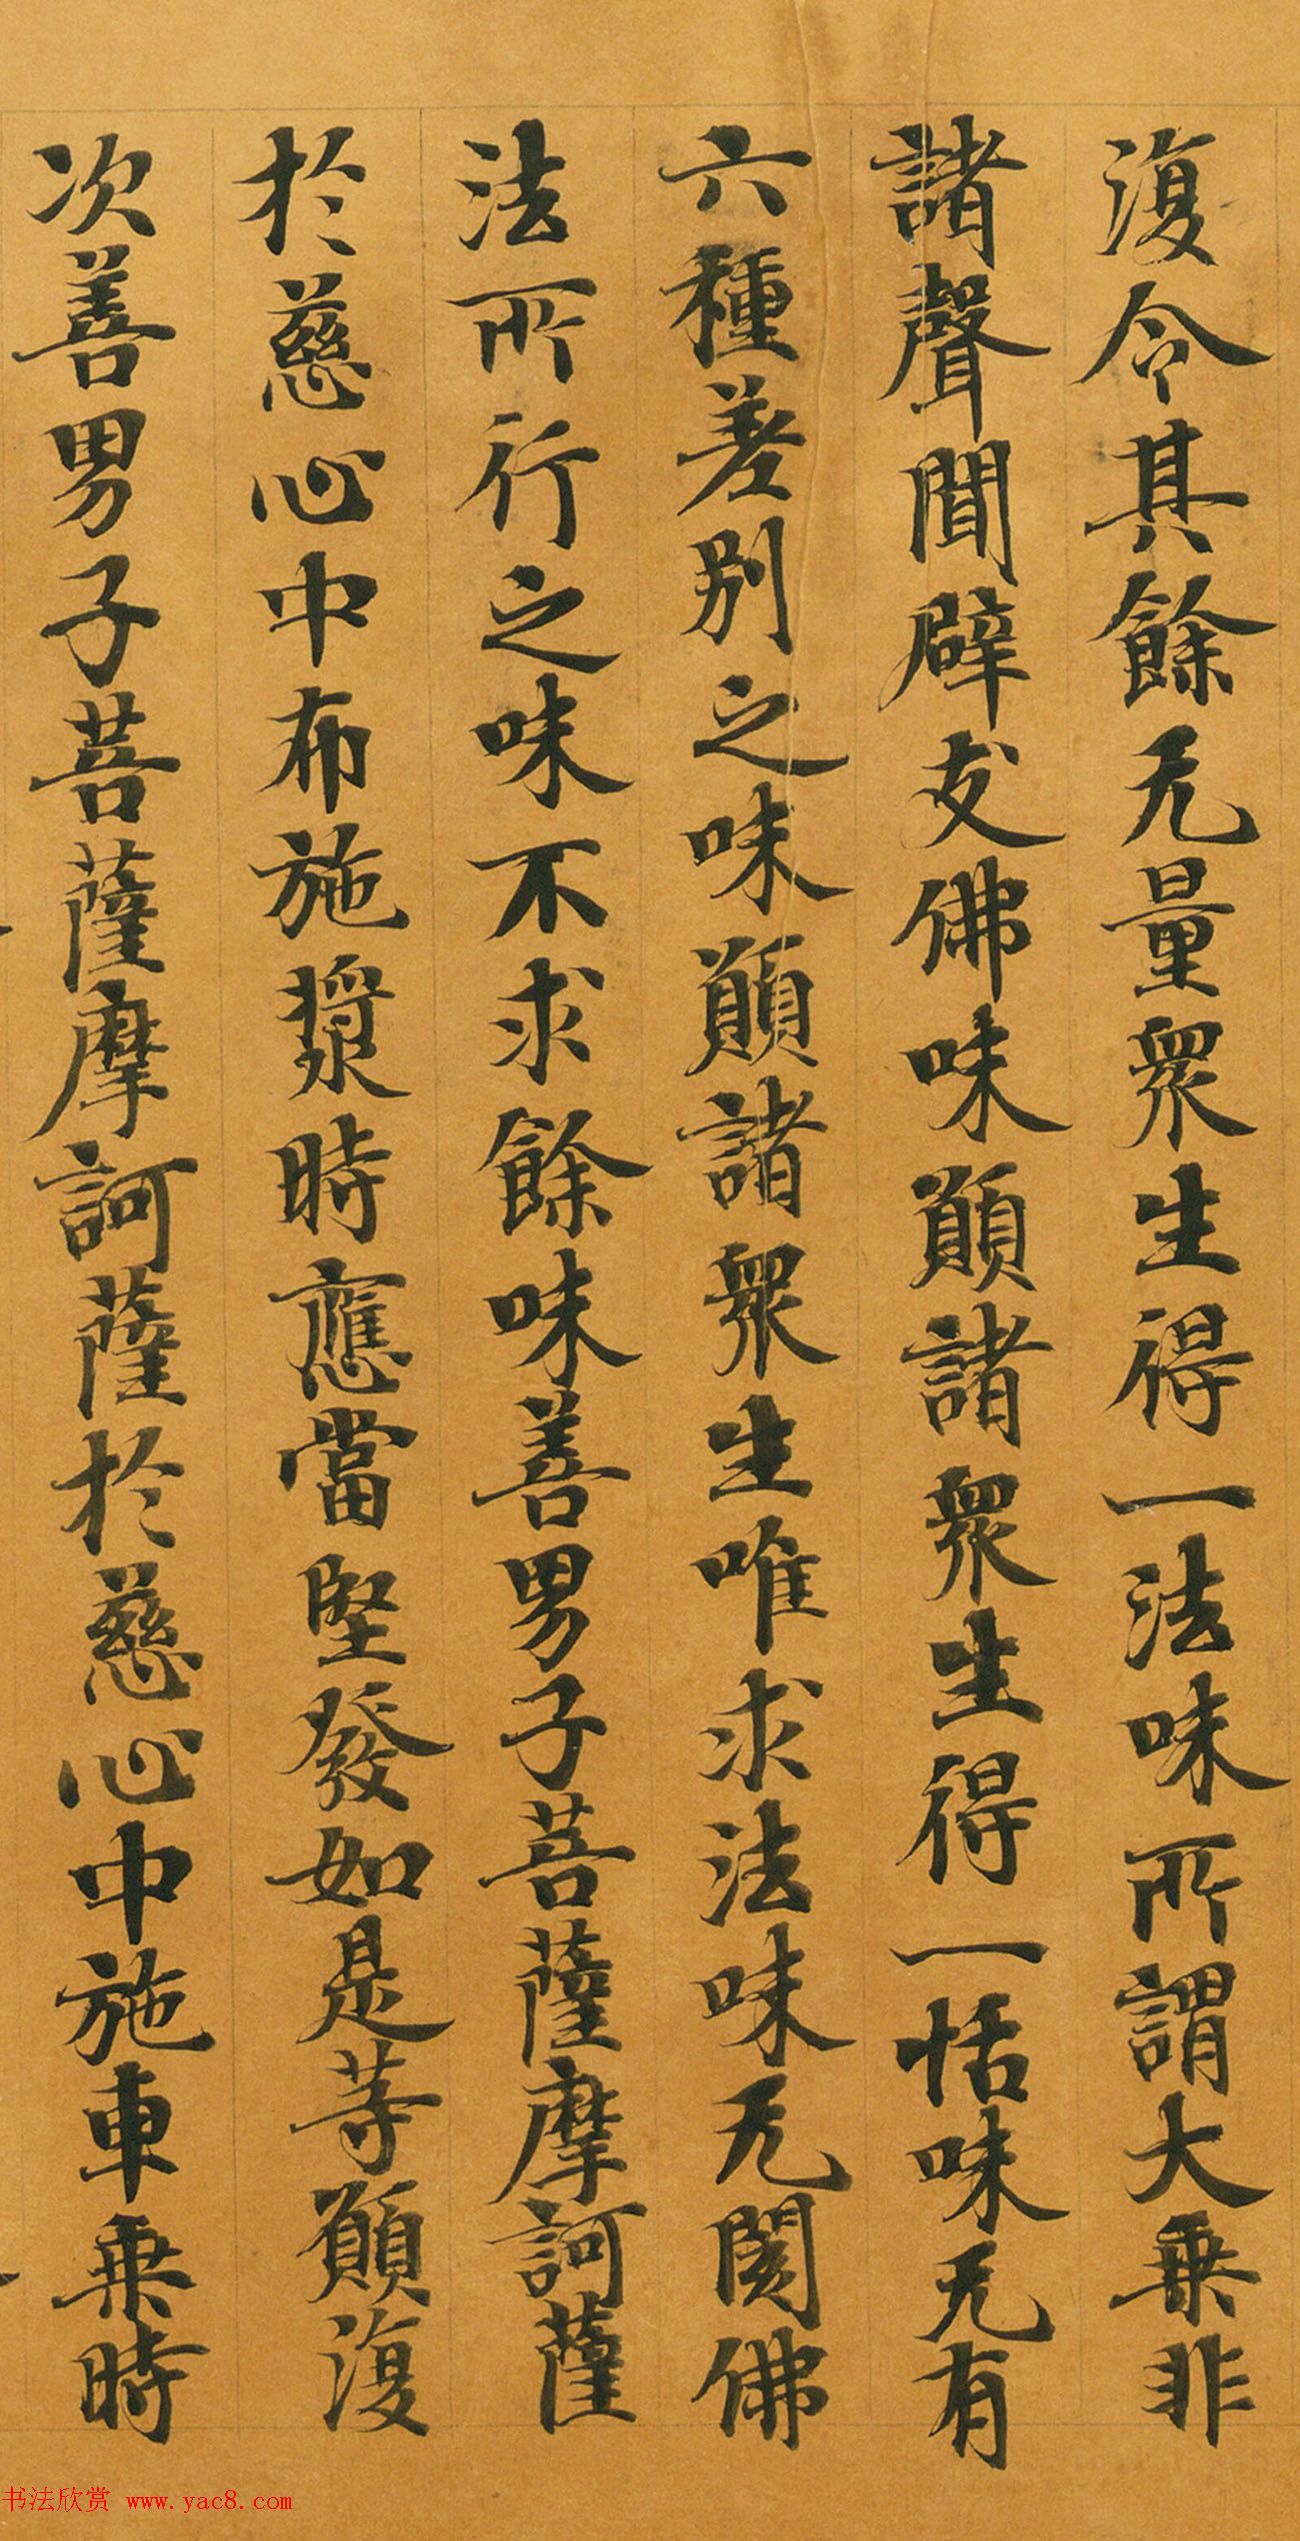 復令其餘无量衆生得一法味所謂大乗非
諸聲聞辟支佛味願諸衆生得一恬味无有
六種差别之味願諸衆生唯求法味无閡佛
法所行之味不求餘味善男子菩薩摩訶薩
於慈心中布施漿時應當堅發如是等願復
次善男子菩薩摩訶薩於慈心中施車乗時
书法欣赏 www.yac8.com